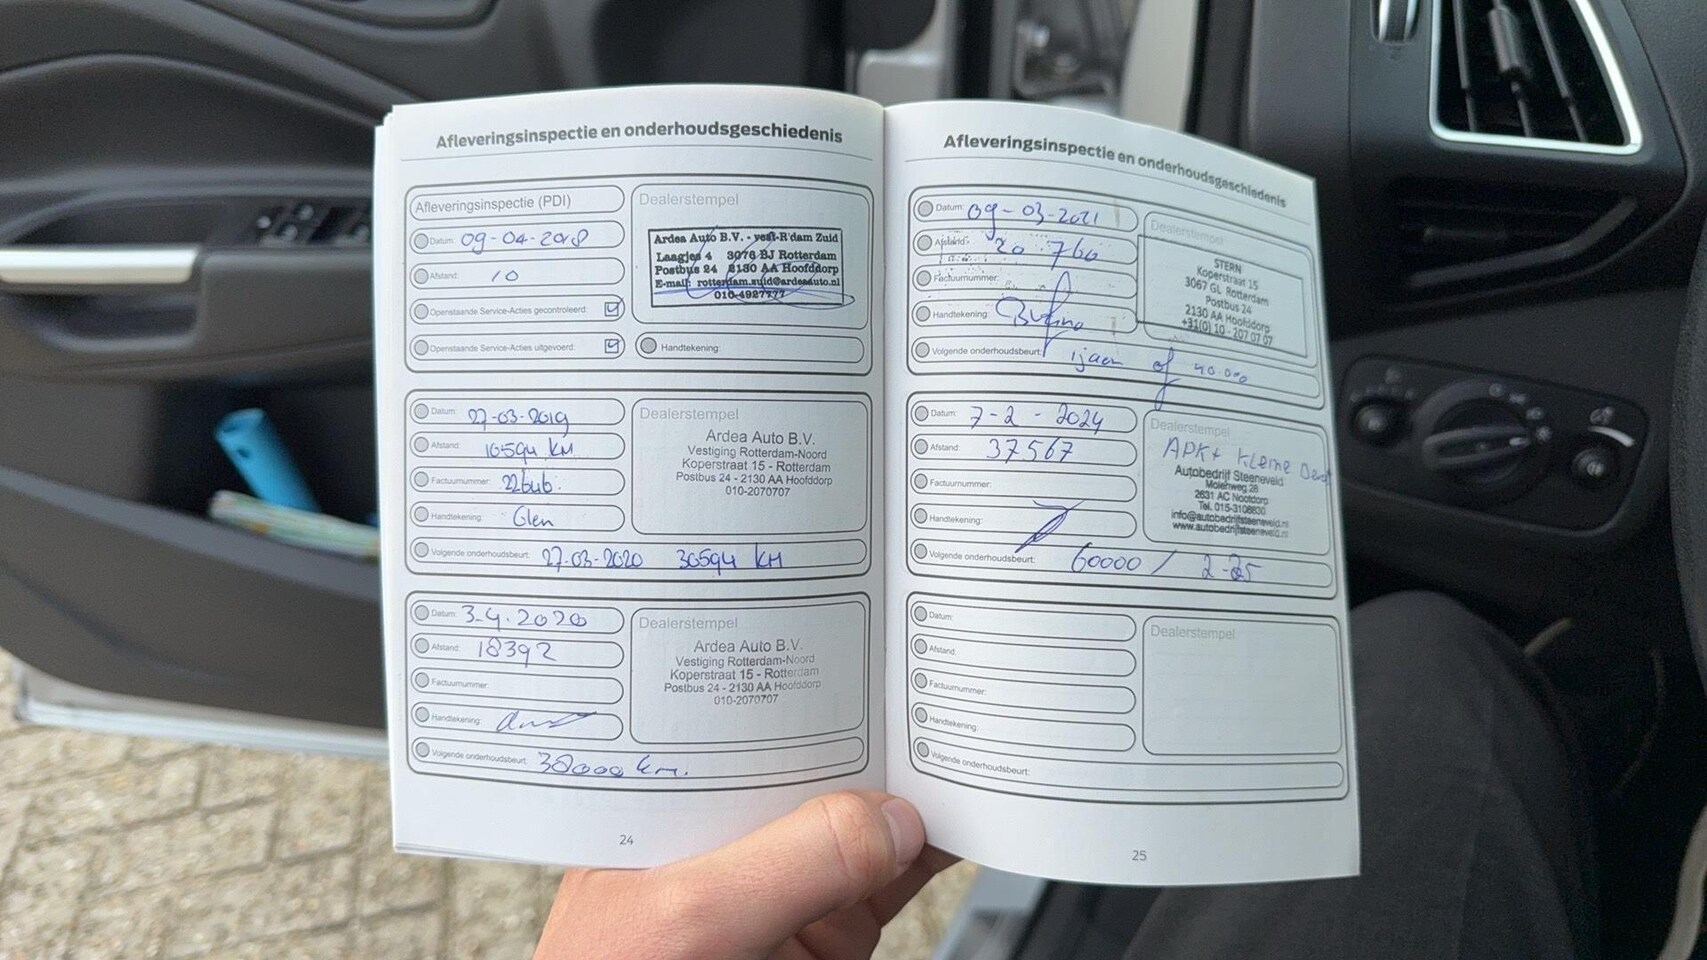 Afleveringsinspectie en onderhoudsgeschiedenis
Afleveringsinspectie (PDI)
Datum: 09-04-2018
Afstand: 10
Openstaande Service-Acties gecontroleerd:
Openstaande Service-Acties uitgevoerd:
Dealerstempel
Ardea Auto B.V. - vest-R'dam Zuid
Laagjes 4 3076 BJ Rotterdam
Postbus 24 2130 AA Hoofddorp
E-mail: rotterdam.zuid@ardeaauto.nl
010-4927777
Handtekening:
Datum: 27-03-2019
Afstand: 16594 KM
Factuurnummer:
Handtekening: Glen
Volgende onderhoudsbeurt: 27-03-2020 36594 KM
Dealerstempel
Ardea Auto B.V.
Vestiging Rotterdam-Noord
Koperstraat 15 - Rotterdam
Postbus 24 - 2130 AA Hoofddorp
010-2070707
Datum: 3-4.2020
Afstand: 18392
Factuurnummer:
Handtekening:
Volgende onderhoudsbeurt: 38000 km.
Dealerstempel
Ardea Auto B.V.
Vestiging Rotterdam-Noord
Koperstraat 15 - Rotterdam
Postbus 24 - 2130 AA Hoofddorp
010-2070707
24
Afleveringsinspectie en onderhoudsgeschiedenis
Datum: 09-03-2021
Afstand: 20.760
Factuurnummer:
Handtekening:
Volgende onderhoudsbeurt: 1 jaar of 40.000
Dealerstempel
STERN
Koperstraat 15
3067 GL Rotterdam
Postbus 24
2130 AA Hoofddorp
+31(0) 10 - 207 07 07
Datum: 7-2-2024
Afstand: 37567
Factuurnummer:
Handtekening:
Volgende onderhoudsbeurt: 60000 / 2-25
Dealerstempel
APK + Kleine
Autobedrijf Steeneveld
Molenweg 28
2631 AC Nootdorp
Tel. 015-3108630
info@autobedrijfsteeneveld.nl
www.autobedrijfsteeneveld.nl
Datum:
Afstand:
Factuurnummer:
Handtekening:
Volgende onderhoudsbeurt:
Dealerstempel
25